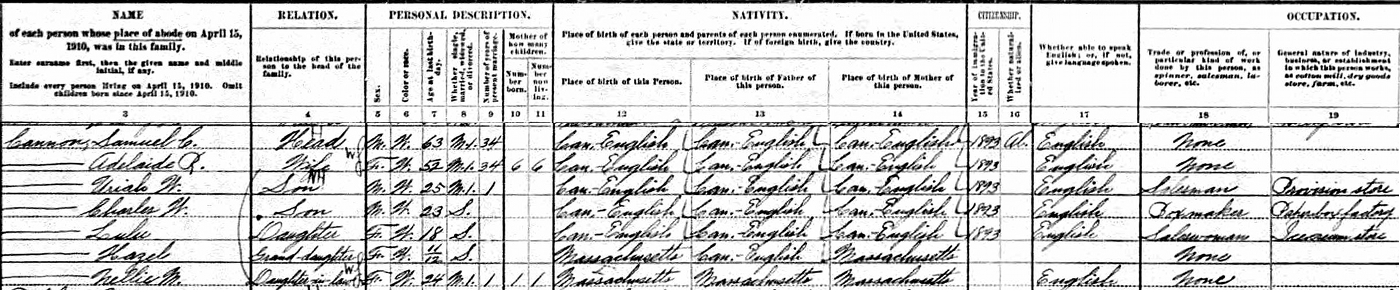 NAME RELATION. PERSONAL DESCRIPTION. NATIVITY. CITIZENSHIP. OCCUPATION.
of each person whose place of abode on April 15, 1910, was in this family.
Enter surname first, then the given name and middle initial, if any.
Include every person living on April 15, 1910. Omit children born since April 15, 1910.
Relationship of this person to the head of the family.
Sex.
Color or race.
Age at last birthday.
Whether single, married, widowed, or divorced.
Number of years of present marriage.
Mother of how many children.
Number born.
Number now living.
Place of birth of each person and parents of each person enumerated. If born in the United States, give the state or territory. If of foreign birth, give the country.
Place of birth of this Person.
Place of birth of Father of this person.
Place of birth of Mother of this person.
Year of immigration to the United States.
Whether naturalized or alien.
Whether able to speak English; or, if not, give language spoken.
Trade or profession of, or particular kind of work done by this person, as spinner, salesman, laborer, etc.
General nature of industry, business, or establishment in which this person works, as cotton mill, dry goods store, farm, etc.
3 4 5 6 7 8 9 10 11 12 13 14 15 16 17 18 19
Cannon, Samuel C. Head M. W. 63 M.1. 34 Can-English Can.-English Can.-English 1893 Al. English None
— Adelaide R. Wife F. W. 52 M.1. 34 6 6 Can-English Can.-English Can.-English 1893 English None
— Uriah W. Son M. W. 25 M.1. 1 Can-English Can.-English Can.-English 1893 English Salesman Provision store
— Charles W. Son M. W. 23 S. Can-English Can.-English Can.-English 1893 English Boxmaker factory
— Lulu Daughter F. W. 18 S. Can.-English Can.-English Can.-English 1893 English Saleswoman store
— Hazel Grand-daughter F. W. 11/12 S. Massachusetts Can.-English Massachusetts None
— Nellie M. Daughter-in-law F. W. 24 M.1. 1 1 1 Massachusetts Massachusetts Massachusetts English None